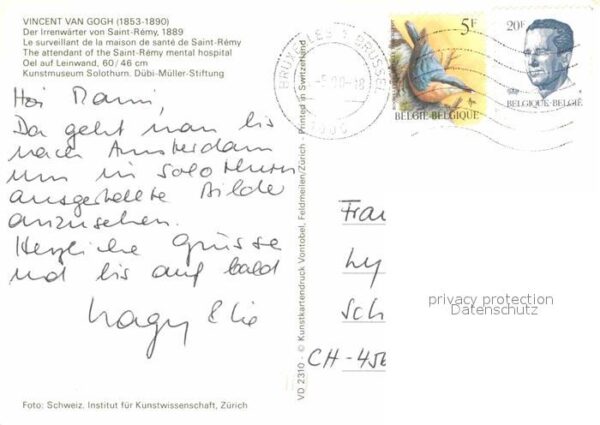 VINCENT VAN GOGH (1853-1890)
Der Irrenwärter von Saint-Rémy, 1889
Le surveillant de la maison de santé de Saint-Rémy
The attendant of the Saint-Rémy mental hospital
Oel auf Leinwand, 60/46 cm
Kunstmuseum Solothurn. Dübi-Müller-Stiftung
Hoi Mami,
Da geht man bis
nach Amsterdam
um in Solothurn
ausgestellte Bilder
anzusehen.
Herzliche Grüsse
und bis auf bald
Foto: Schweiz. Institut für Kunstwissenschaft, Zürich
VD 2310 - © Kunstkartendruck Vontobel, Feldmeilen/Zürich - Printed in Switzerland
BRUXELLES 1 BRUSSEL
5F
BELGIË-BELGIQUE
20F
BELGIQUE-BELGIË
Fra
Ly
Sch
CH-456
privacy protection
Datenschutz